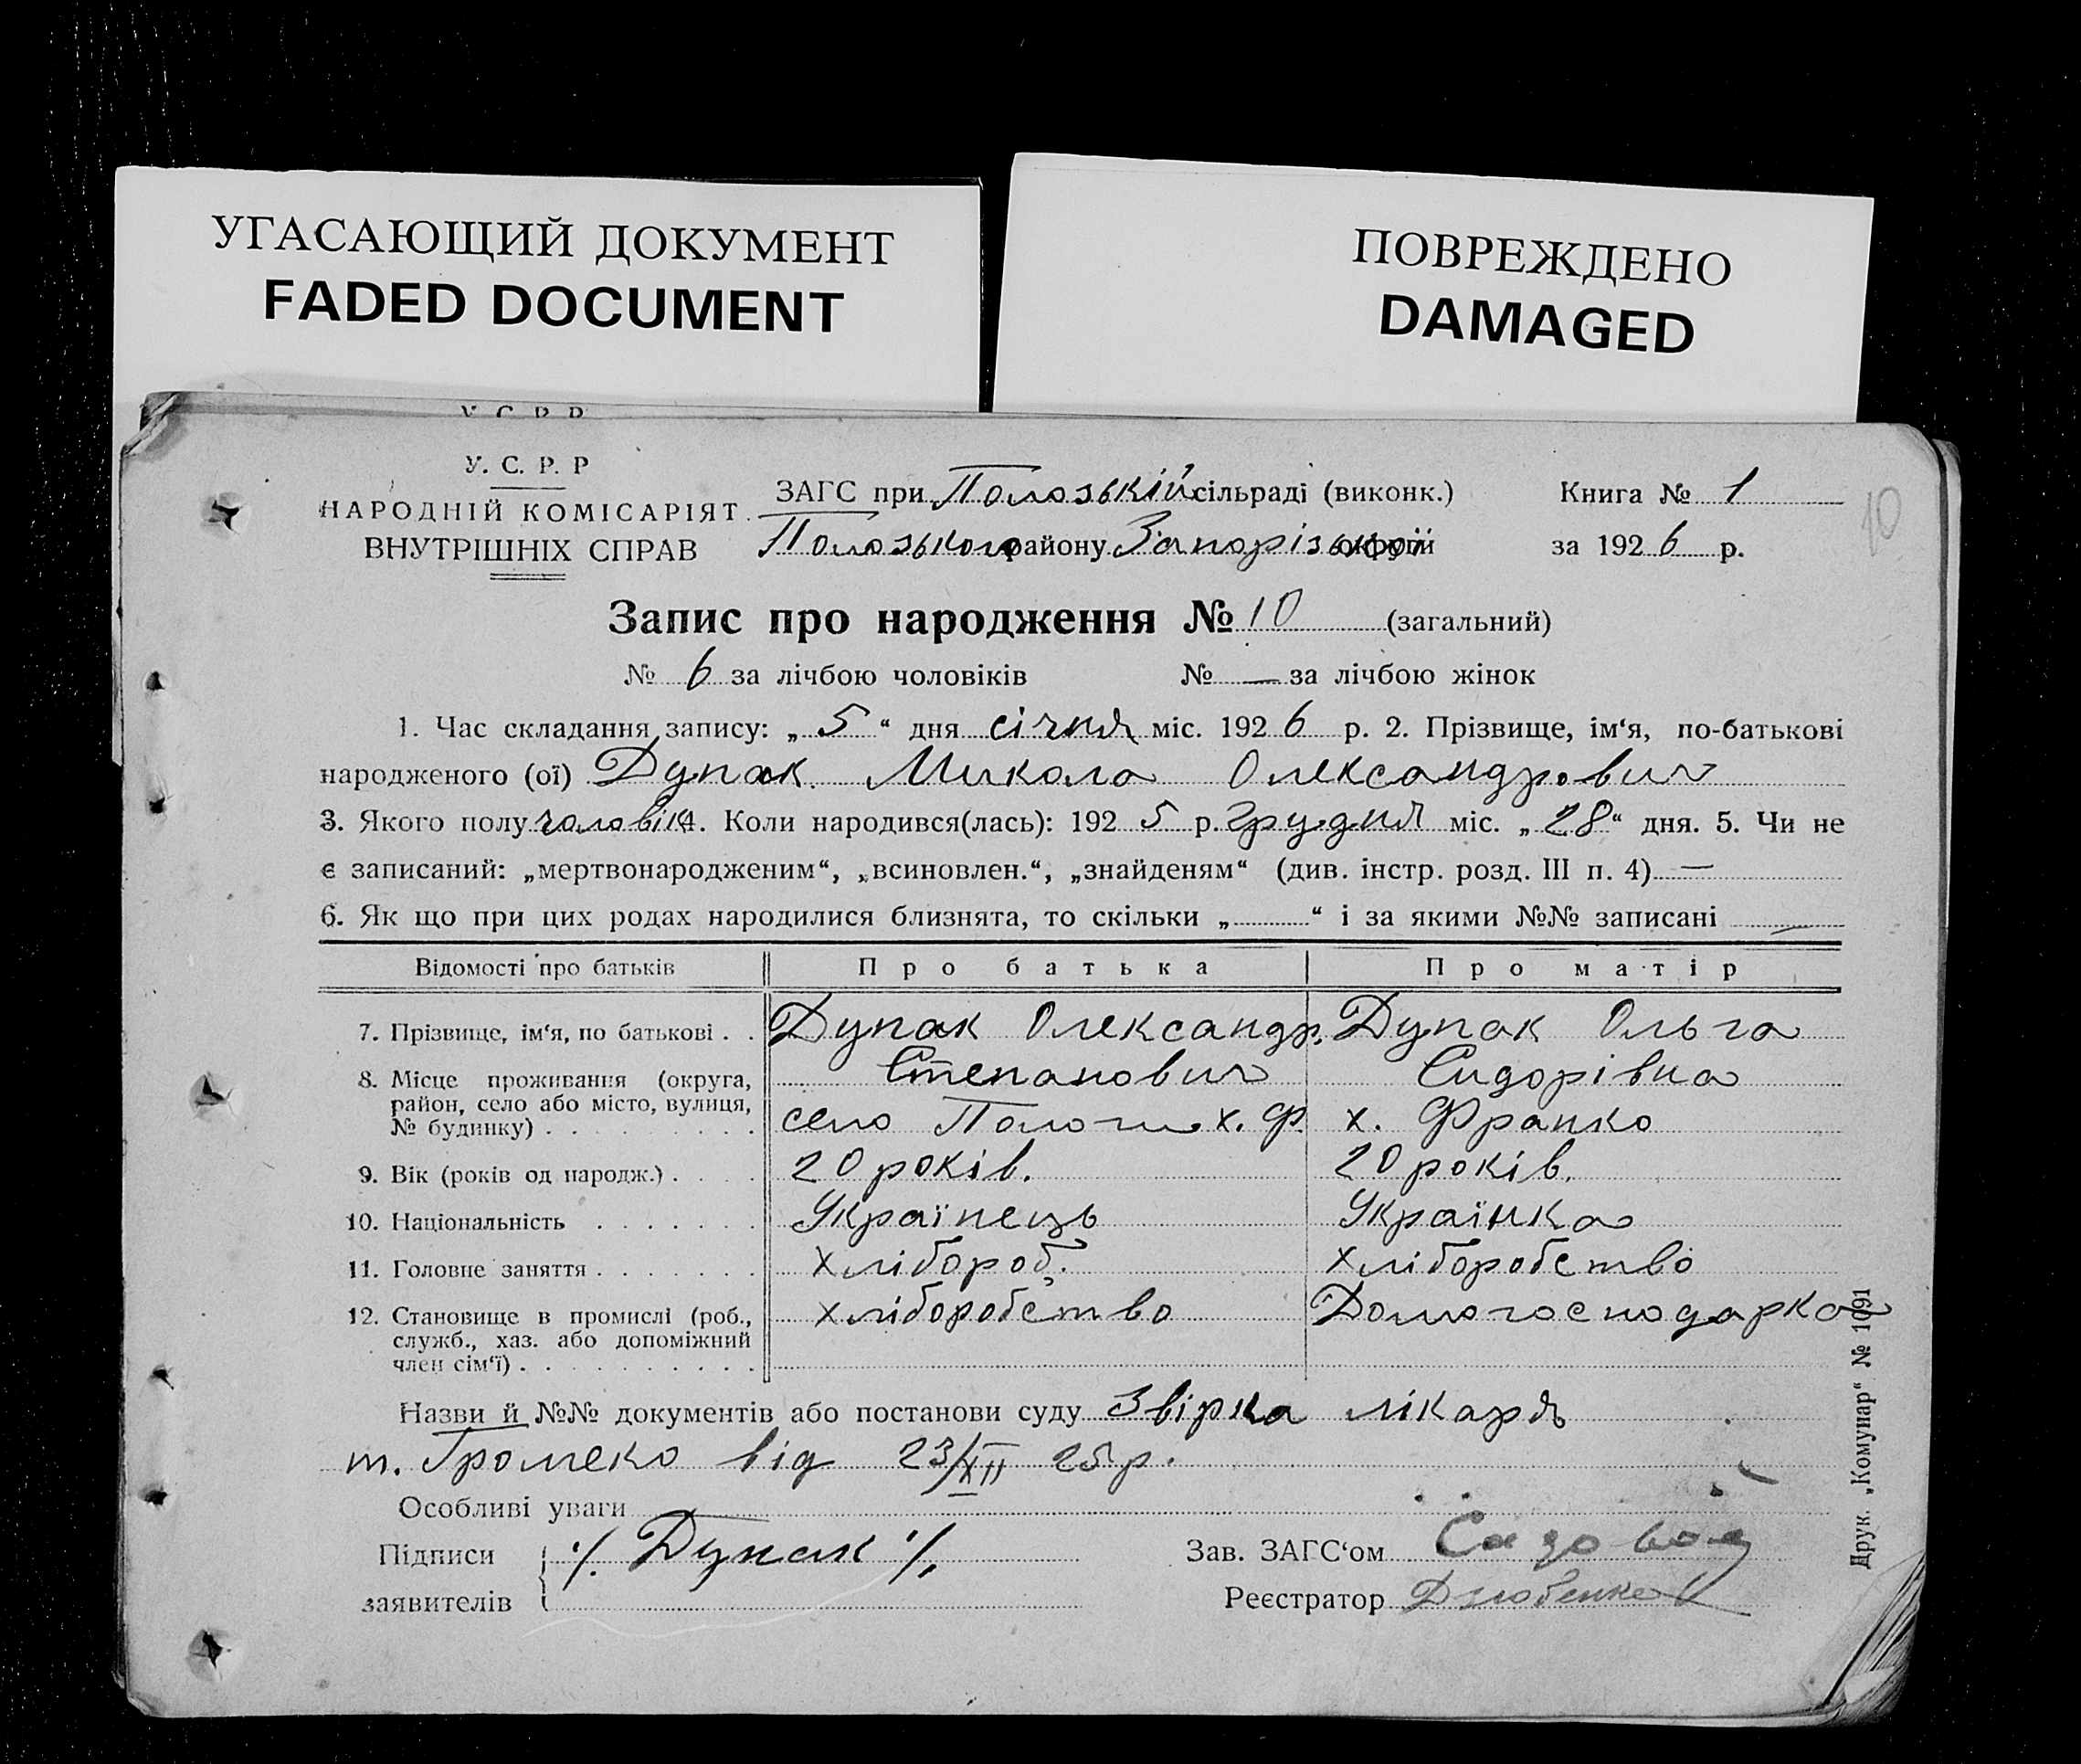 УГАСАЮЩИЙ ДОКУМЕНТ
FADED DOCUMENT
ПОВРЕЖДЕНО
DAMAGED
У. С. Р. Р
НАРОДНІЙ КОМІСАРІЯТ
ВНУТРІШНІХ СПРАВ
ЗАГС при Пологській сільраді (виконк.)
Пологського району Запорізької округи
Книга № 1
за 1926 р.
10
Запис про народження № 10 (загальний)
№ 6 за лічбою чоловіків № — за лічбою жінок
1. Час складання запису: „ 5 “ дня січня міс. 1926 р. 2. Прізвище, ім‘я, по-батькові
народженого (ої) Дупак Микола Олександрович
3. Якого полу чоловік 4. Коли народився(лась): 1925 р. грудня міс. „ 28 “ дня. 5. Чи не
є записаний: „мертвонародженим“, „всиновлен.“, „знайденям“ (див. інстр. розд. III п. 4) —
6. Як що при цих родах народилися близнята, то скільки „ “ і за якими №№ записані —
Відомості про батьків Про батька Про матір
7. Прізвище, ім‘я, по батькові . . Дупак Олександр. Дупак Ольга
Степанович Сидорівна
8. Місце проживання (округа,
район, село або місто, вулиця,
№ будинку) село Пологи х. Ф. х. Франко
9. Вік (років од народж.) 20 років. 20 років.
10. Національність Українець Українка
11. Головне заняття хлібороб. хліборобство
12. Становище в промислі (роб., хліборобство Домогосподарка
служб., хаз. або допоміжний
член сім‘ї)
Назви й №№ документів або постанови суду Звірка лікаря
т. Громеко від 23/XII 25 р.
Особливі уваги
Підписи
заявителів
/. Дупак /.
Зав. ЗАГС‘ом
Реєстратор Дзюбенко
Друк. „Комунар“ № 1091